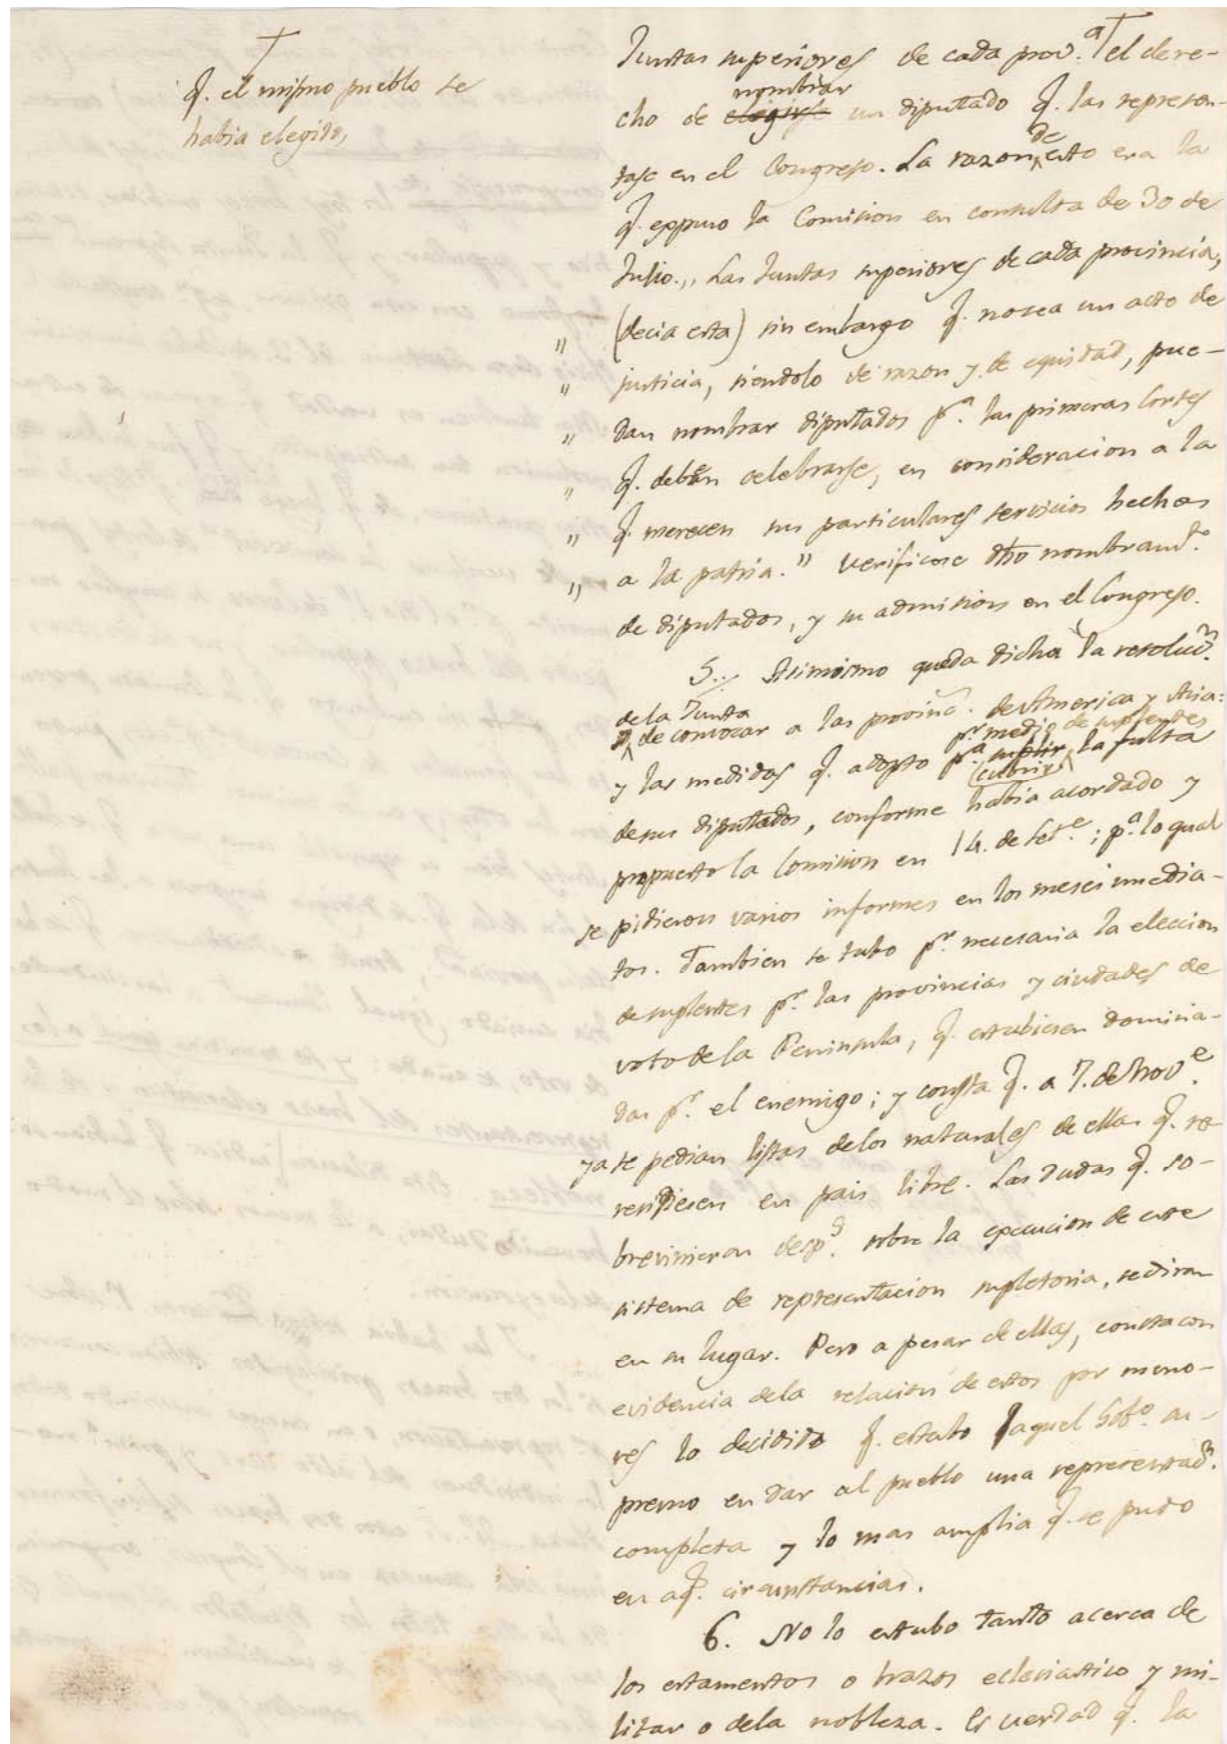 q. el mismo pueblo se
habia elegido,
Juntas superiores de cada prov.ª el dere-
nombrar
cho de elegirse un diputado q. las represen-
de
tase en el Congreso. La razon esto era la
q. expuso la Comision en consulta de 30 de
Julio. „ Las Juntas superiores de cada provincia,
„ (decia esta) sin embargo q. no sea un acto de
„ justicia, siendolo de razon y de equidad, pue-
„ dan nombrar diputados p.ª las primeras Cortes
„ q. deben celebrarse, en consideracion a la
„ q. merecen sus particulares servicios hechos
„ a la patria." Verificose dho nombram.to
de diputados, y su admision en el Congreso.
5. Asimismo queda dicha la resoluc.n
de la Junta
de convocar a las provinc. de America y Asia:
p.r medio de suplentes
y las medidas q. adopto p.ª suplir la falta
cubrir
de sus diputados, conforme habia acordado y
propuesto la Comision en 14. de Set.e; p.ª lo qual
se pidieron varios informes en los meses inmedia-
tos. Tambien se tubo p.r necesaria la eleccion
de suplentes p.r las provincias y ciudades de
voto de la Peninsula, q. estubiesen domina-
das p.r el enemigo; y consta q. a 7. de Nov.e
ya se pedian listas de los naturales de ellas q. re-
sidiesen en pais libre. Las dudas q. so-
brevinieron desp.s sobre la egecucion de este
sistema de representacion supletoria, se diran
en su lugar. Pero a pesar de ellas, consta con
evidencia de la relacion de estos por meno-
res lo decidido q. estubo aquel Gob.o su-
premo en dar al pueblo una representac.n
completa y lo mas amplia q. se pudo
en aq. circunstancias.
6. No lo estubo tanto acerca de
los estamentos o brazos eclesiastico y mi-
litar o de la nobleza. Es verdad q. la